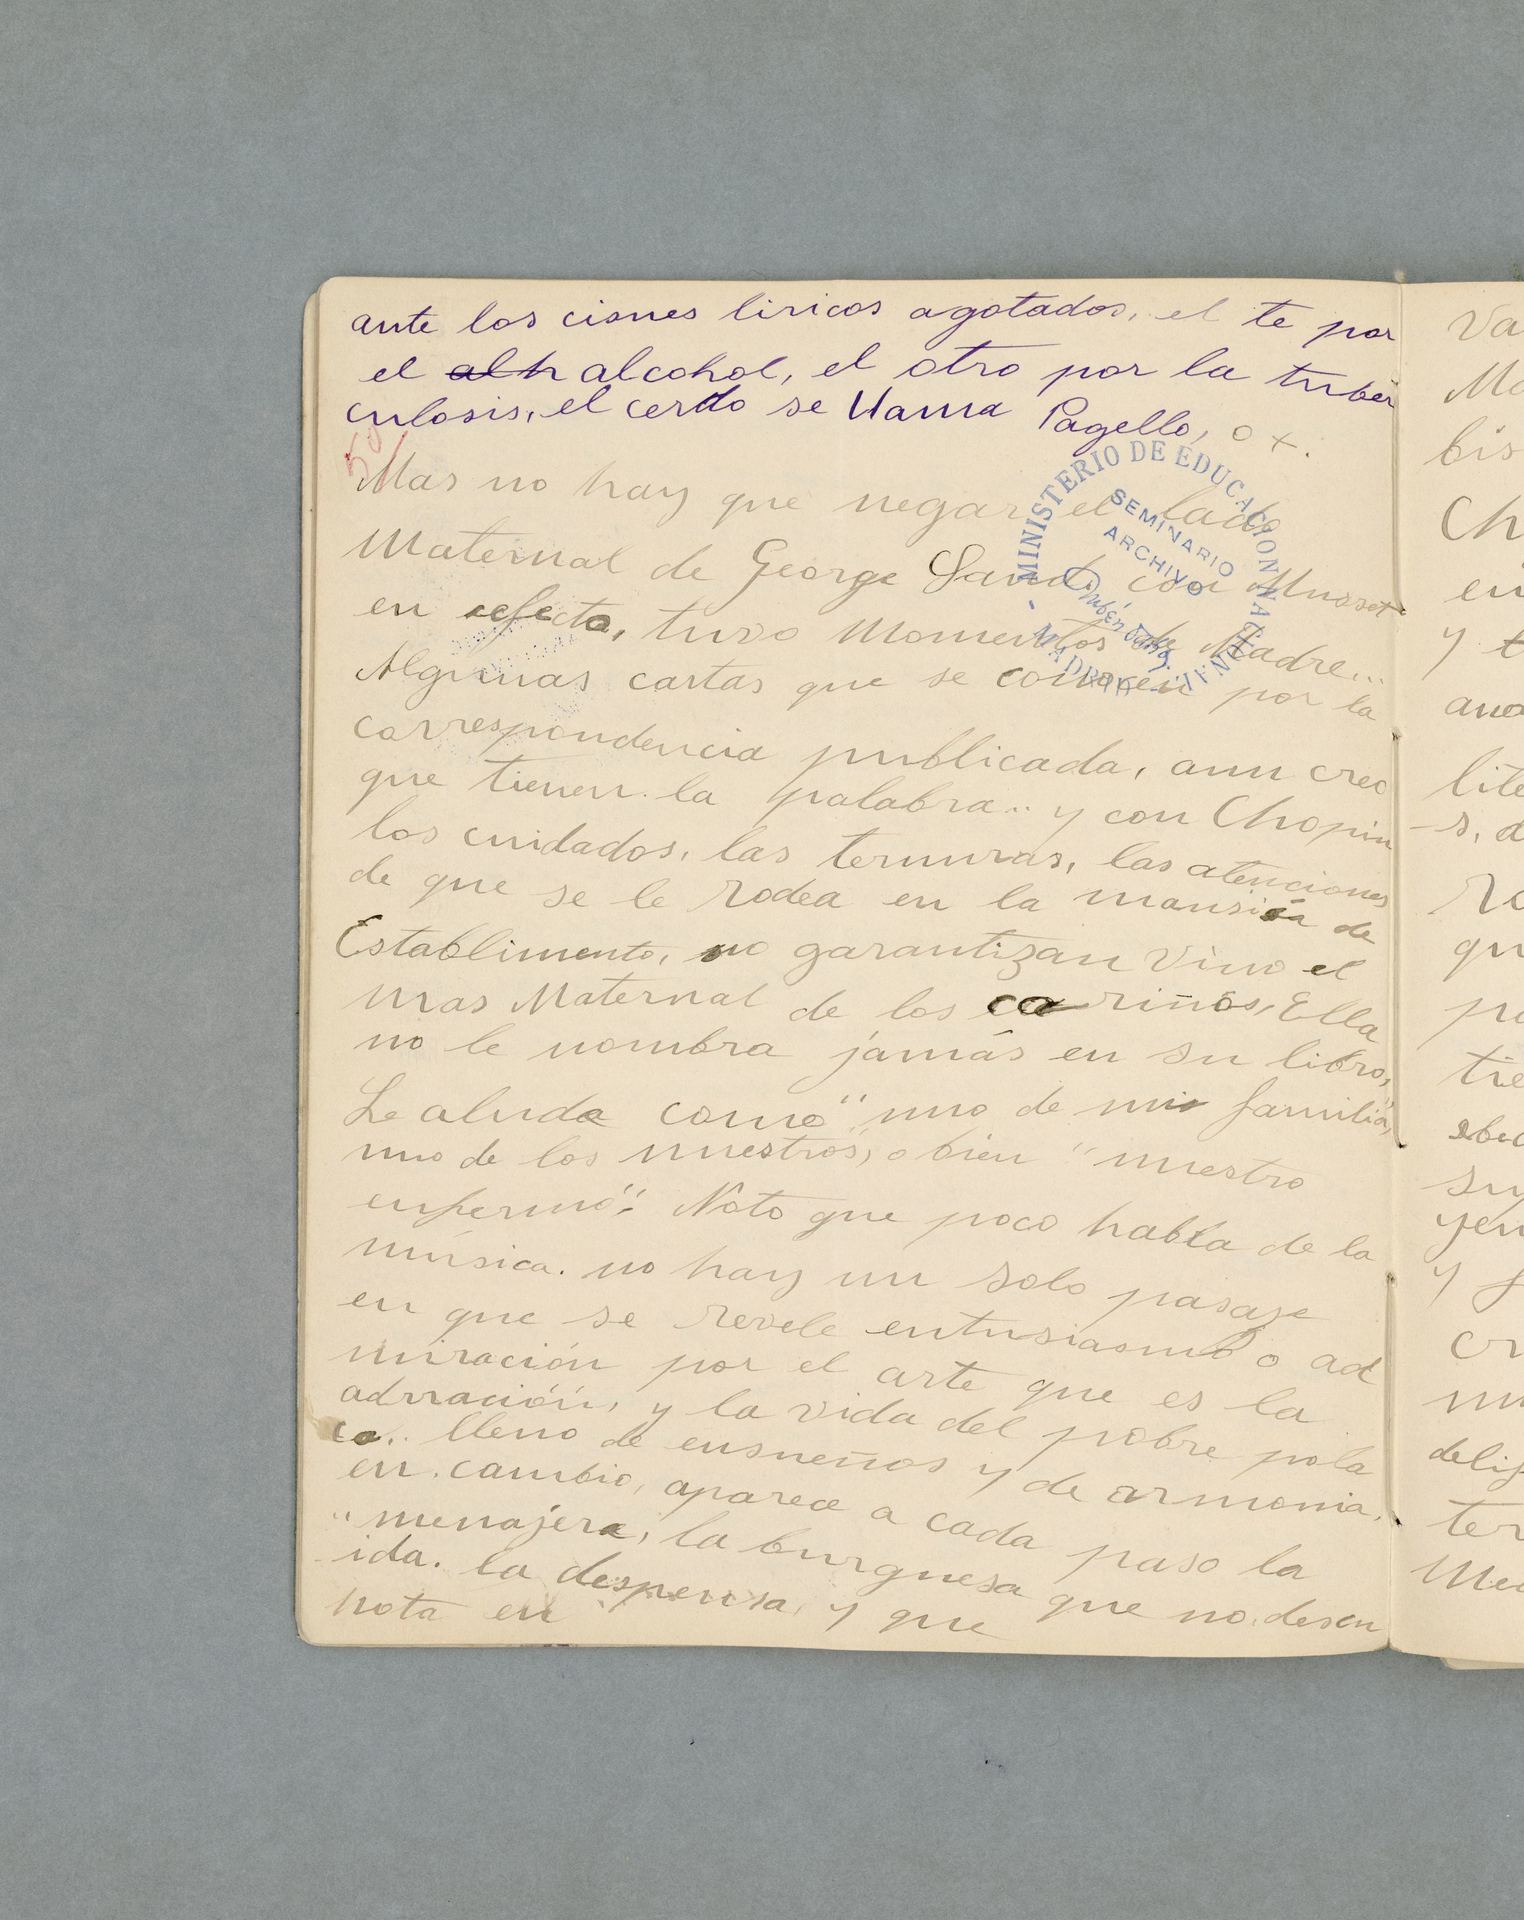 ante los cisnes liricos agotados, el te por
el alh alcohol, el otro por la tuber
culosis, el cerdo se llama Pagello, o x.
50
Mas no hay que negar el lado
Maternal de George Sand, con Musset
en efecto, tuvo Momentos de Madre...
Algunas cartas que se conocen por la
correspondencia publicada, aun creo
que tienen la palabra.. y con Chopin
los cuidados, las ternuras, las atenciones
de que se le rodea en la mansión de
Establimento, no garantizan vino el
mas Maternal de los cariños, Ella
no le nombra jamás en su libro,
Le aluda como "uno de mi familia,"
uno de los nuestros, o bien "nuestro
enfermo". Noto que poco habla de la
música. no hay un solo pasaje
en que se revele entusiasmo o ad
miración por el arte que es la
adrración, y la vida del pobre pola
co.. lleno de ensueños y de armonia,
en. cambio, aparece a cada paso la
"menajera, la burguesa que no. descu
ida. la despensa, y que
nota en
MINISTERIO DE EDUCACION NACIONAL - MADRID -
SEMINARIO
ARCHIVO
Rubén Darío
Va
Ma
bis
Ch
en
y t
ana
lite
-s, d
ro
qu
po
tie
su
yen
y f
cr
mu
delig
ter
Mee